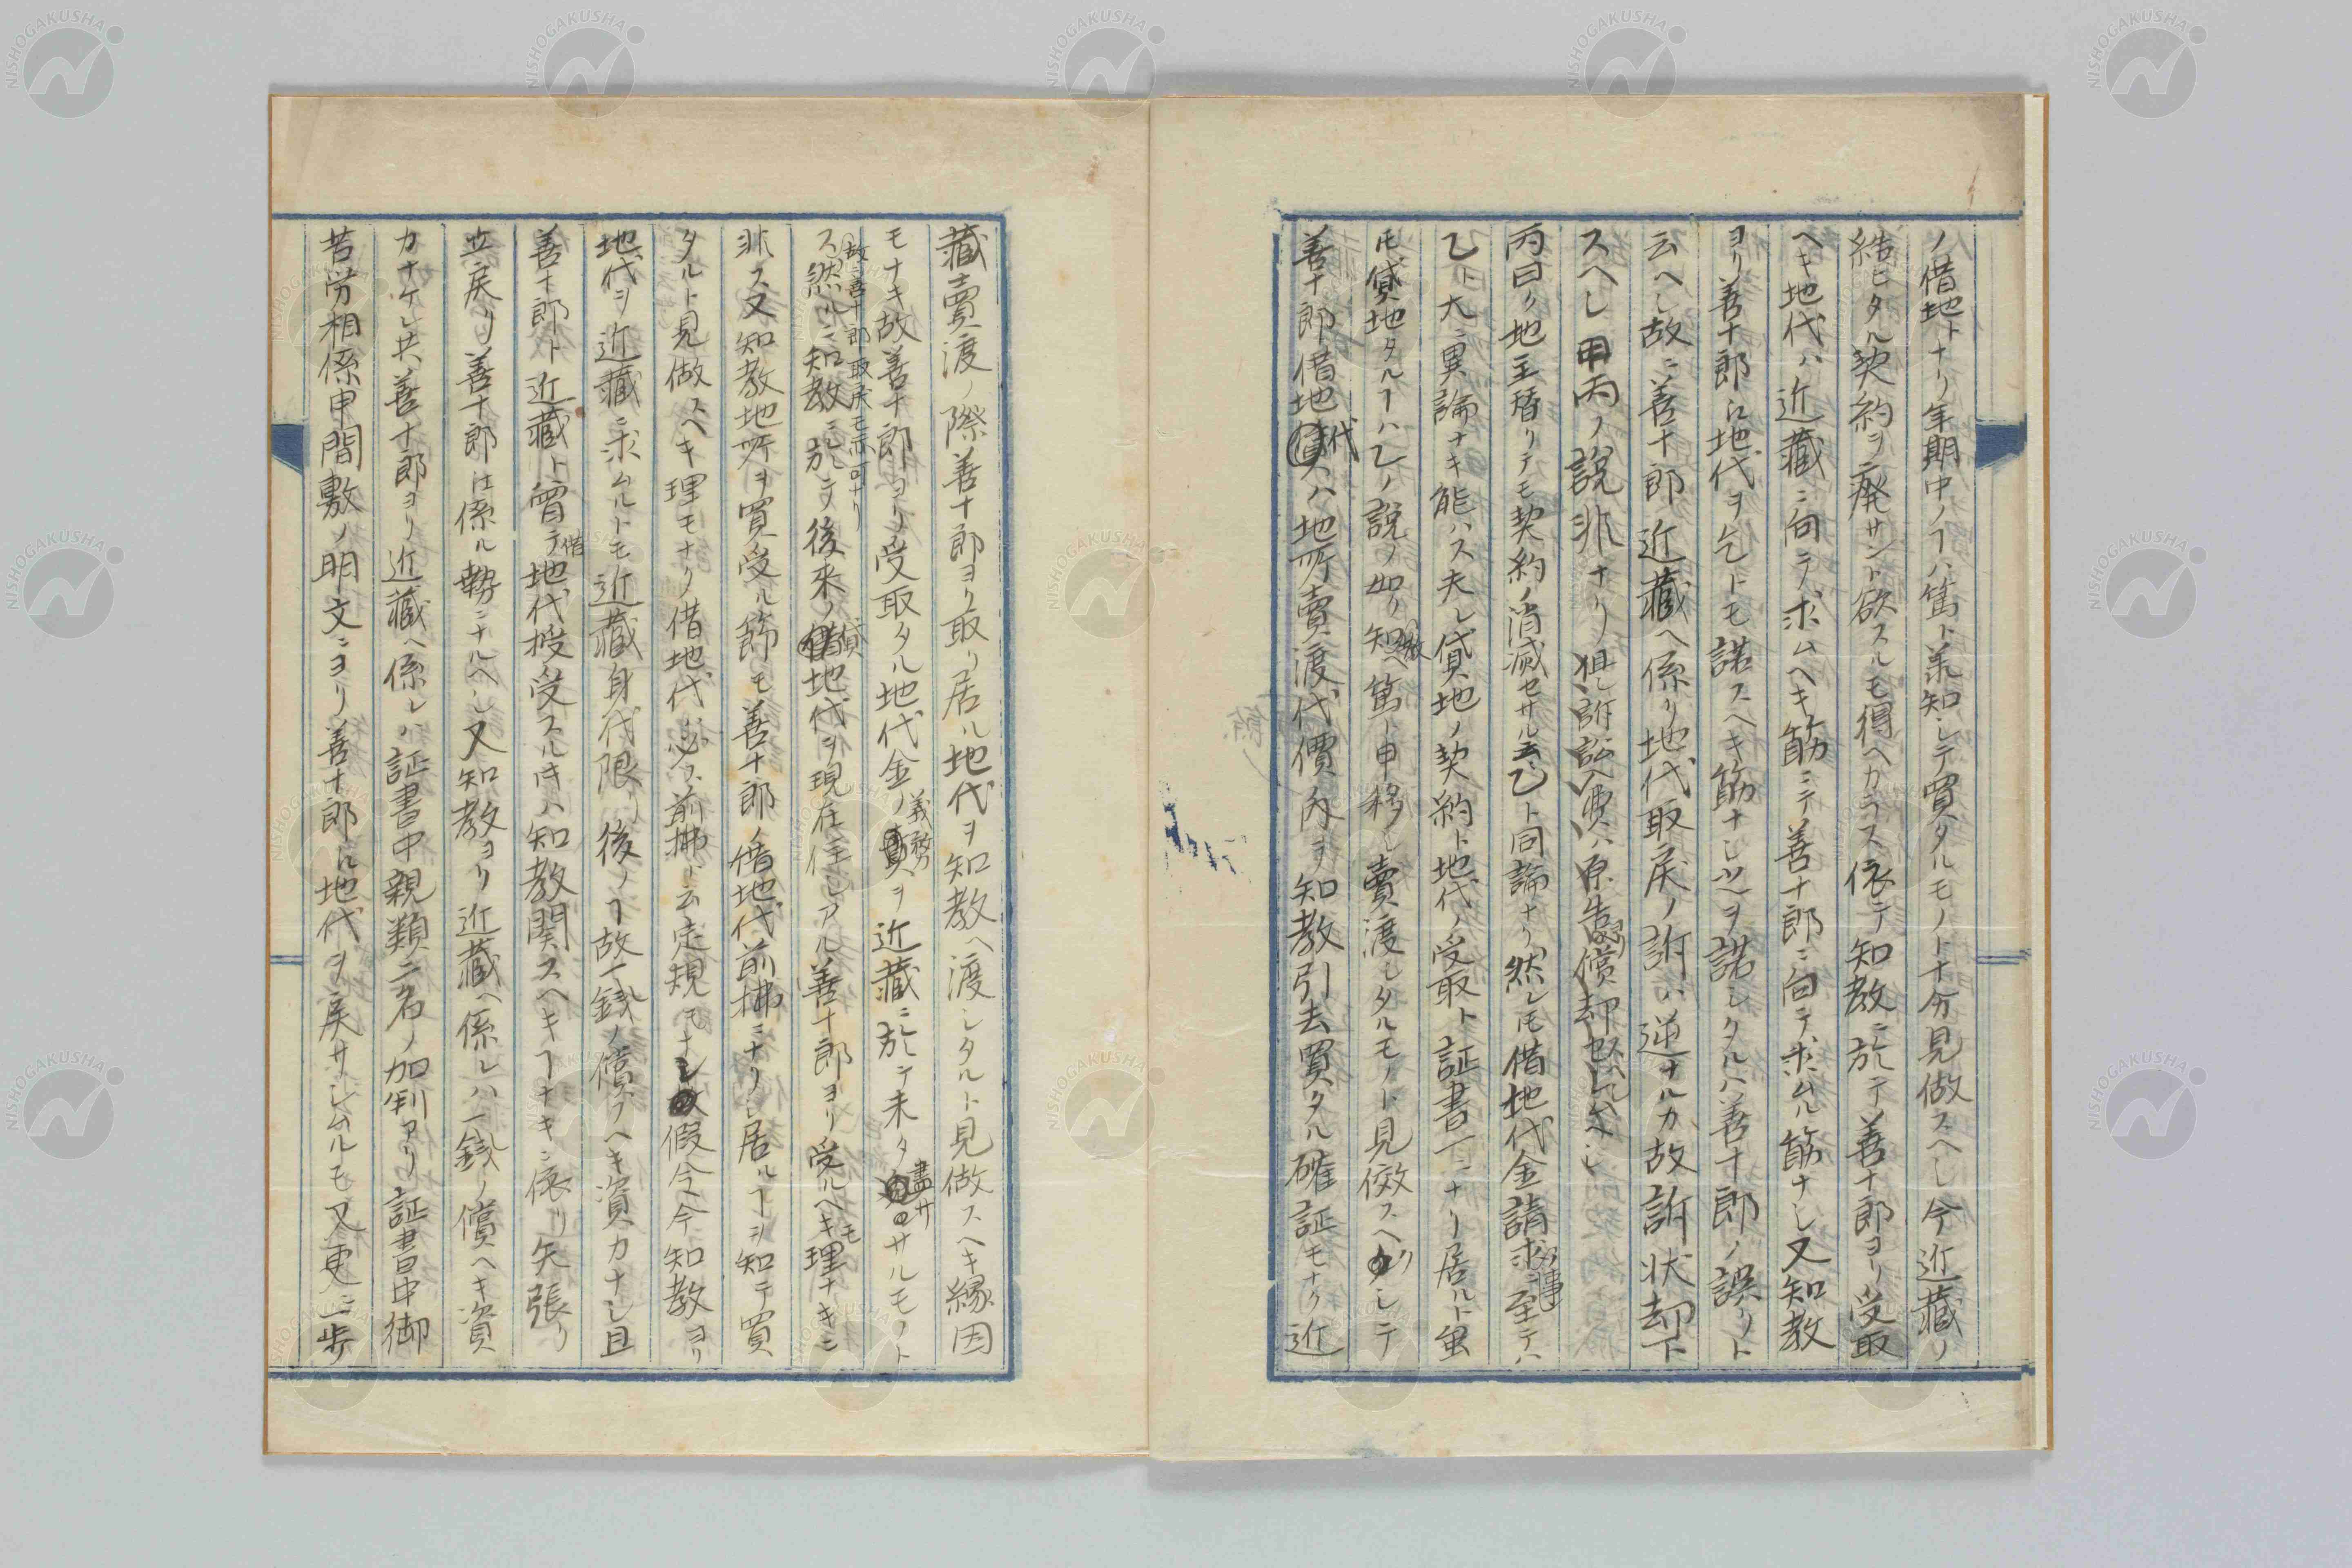 ノ借地トナリ年期中ノヿハ篤ト業知シテ買タルモノト十分見做スヘシ今近藏ノ
結ヒタル契約ヲ廃サント欲スルモ得ヘカラス依テ知教ニ於テ善十郎ヨリ受取
ヘキ地代ハ近藏ニ向テ求ムヘキ筋ニテ善十郎ニ向テ求ムル筋ナシ又知教
ヨリ善十郎江地代ヲ乞トモ諾スヘキ筋ナシ之ヲ諾シタルハ善十郎ノ誤リト
云ヘシ故ニ善十郎近藏ヘ係リ地代取戻ノ訴ハ逆ナルカ故訴状却下
スヘシ甲丙ノ説非ナリ但訴訟入費ハ原告ヨリ償却スヘシ
丙曰ク地主替リテモ契約ノ消滅セサルハ乙ト同論ナリ然レ𪜈借地代金請求ノ事ニ至テハ
乙ト大ニ異論ナキ能ハス夫レ貸地ノ契約ト地代ノ受取ト証書一ニナリ居ルト虽
𪜈貸地タルヿハ乙ノ説ノ如ク知教ヘ篤ト申移シ賣渡シタルモノト見做スヘクシテ
善十郎借地代ハ地所賣渡代價内ヲ知教引去買タル確証モナク近
藏賣渡ノ際善十郎ヨリ取リ居ル地代ヲ知教ヘ渡シタルト見做スヘキ縁因
モナキ故善十郎ヨリ受取タル地代金ノ義務ヲ近藏ニ於テ未タ盡サヽルモノト
故ニ善十郎取戻モ亦可ナリ
ス然ルニ知教ニ於テ後来ノ貸地代ヲ現在住シアル善十郎ヨリ受ルヘキモ理ナキニ
非ス又知教地所ヲ買受ル節モ善十郎ノ借地代前拂ニナリ居ルヿヲ知テ買
タルト見做スヘキ理モナク借地代ハ必ス前拂ト云定規モナシ假令今知教ヨリ
地代ヲ近藏ニ求ムルトモ近藏身代限リ後ノヿ故一銭ノ償フヘキ資カナシ且
善十郎ト近藏ト曾テ借地代授受スル𪜈ハ知教関スヘキヿナキニ依リ矢張リ
立戻リ善十郎江係ル勢ニナルヘシ又知教ヨリ近藏ヘ係レハ一銭ノ償ヘキ資
カナケレ共善十郎ヨリ近藏ヘ係レハ証書中親類二名ノ加判アリ証書中御
苦労相係申間敷ノ明文ニヨリ善十郎江地代ヲ戻サシムルモ又更ニ一歩